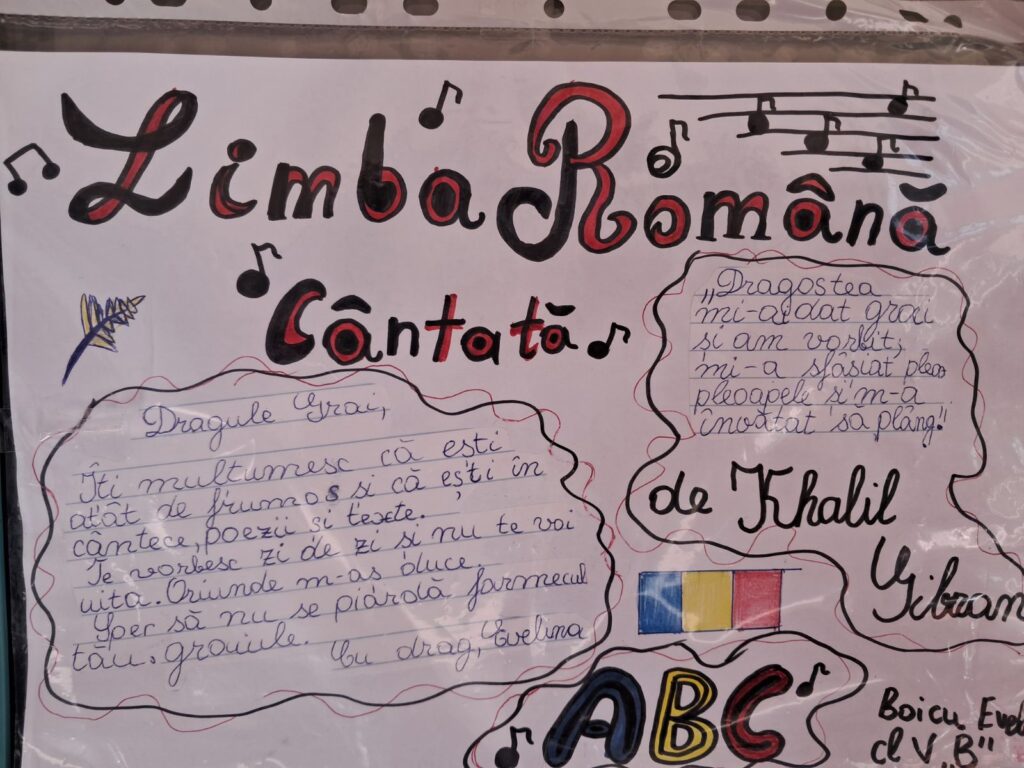 Limba Română
Cântată
Dragule Grai,
Îți multumesc că ești
atât de frumos si că ești în
cântece, poezii si texte.
Te vorbesc zi de zi si nu te voi
uita. Oriunde m-as duce.
Sper să nu se piardă farmecul
tău. graiule.
Cu drag, Evelina
„Dragostea
mi-a dat grai
si am vorbit,
mi-a sfâsiat pleo
pleoapele si m-a
învătat să plâng!"
de Khalil
Gibran
ABC
Boicu
cl V „B"